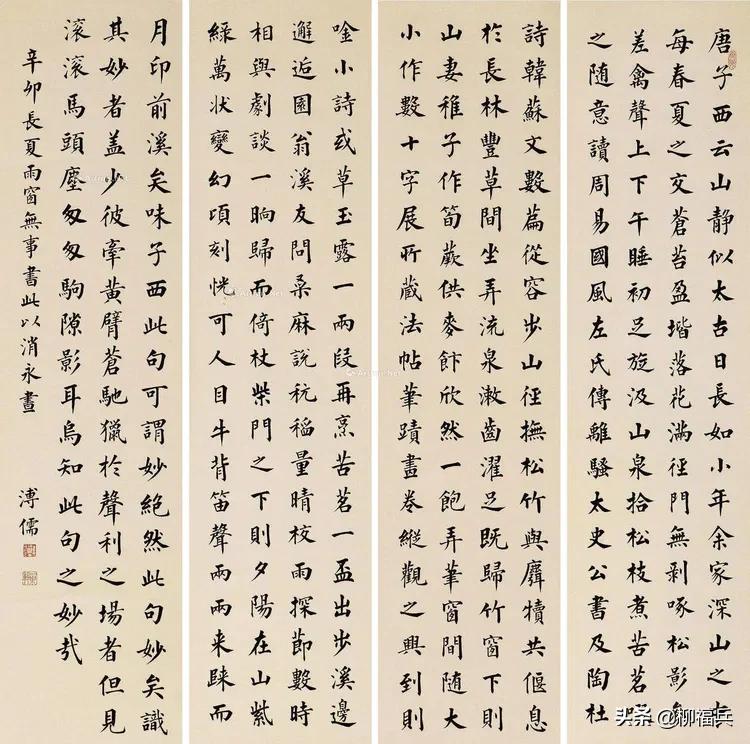 唐子西云山靜似太古日長如小年余家深山之
每春夏之交蒼苔盈堦落花滿徑門無剥啄松影參
差禽聲上下午睡初足旋汲山泉拾松枝煮苦茗啜
之随意讀周易國風左氏傳離騷太史公書及陶杜
詩韓蘇文數篇從容步山徑撫松竹與麛犢共偃息
於長林豐草間坐弄流泉漱齒濯足既歸竹窗下則
山妻稚子作筍蕨供麥飰欣然一飽弄筆窗間随大
小作數十字展所蔵法帖筆蹟畫卷縱觀之興到則
唫小詩或草玉露一兩段再烹苦茗一盃出步溪邊
邂逅園翁溪友問桑麻說秔稲量晴校雨探節數時
相與劇談一晌歸而倚杖柴門之下則夕陽在山紫
緑萬状變幻頃刻恍可人目牛背笛聲兩兩来歸而
月印前溪矣味子西此句可謂妙絶然此句妙矣識
其妙者盖少彼牽黄臂蒼馳獵於聲利之場者但見
滚滚馬頭塵匆匆駒隙影耳烏知此句之妙哉
辛卯長夏雨窗無事書此以消永晝 溥儒
头条 @柳福兵